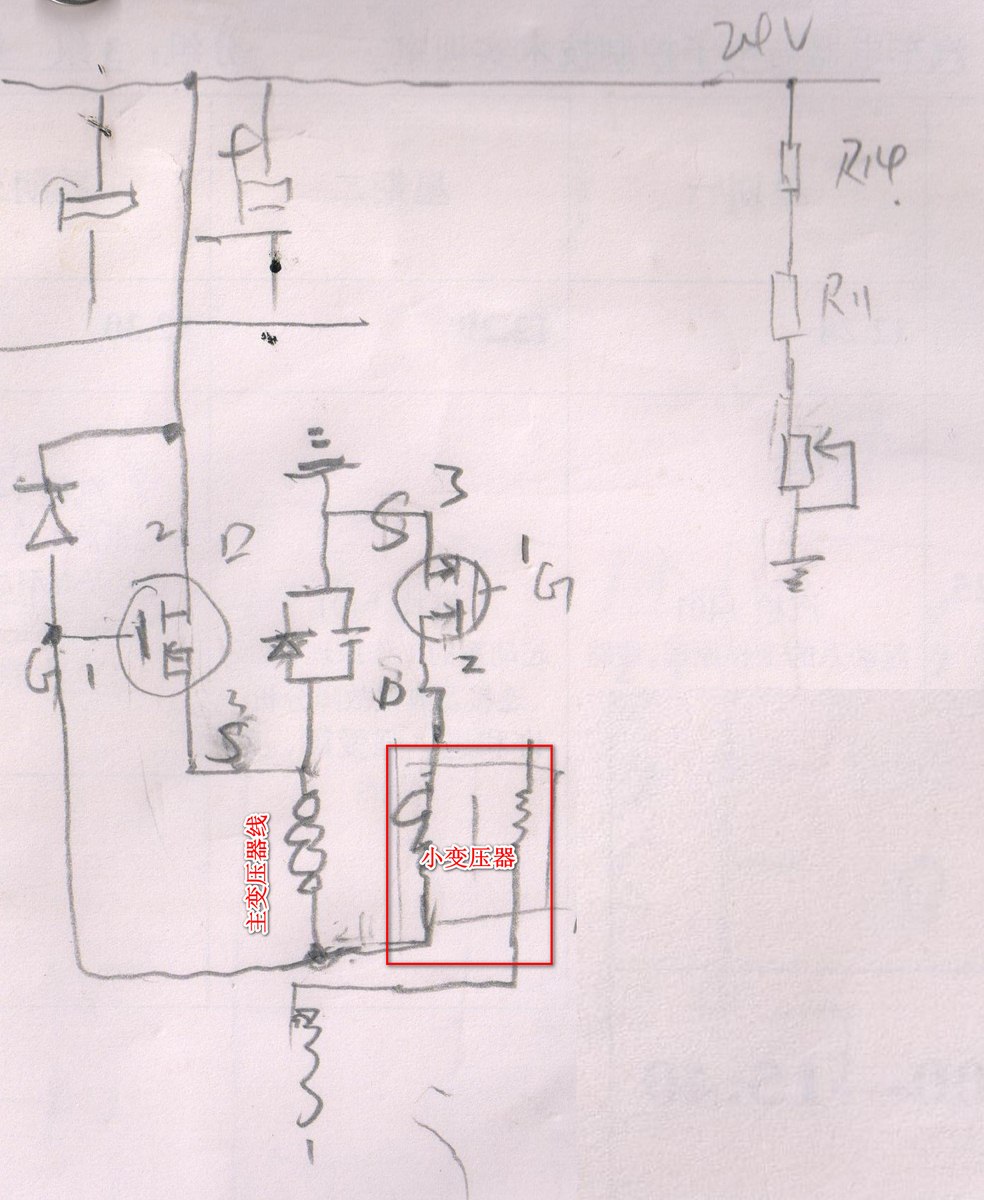 24V
R14
R11
3
S
1
G
2
D
2
D
G
1
3
S
主变压器线
小变压器